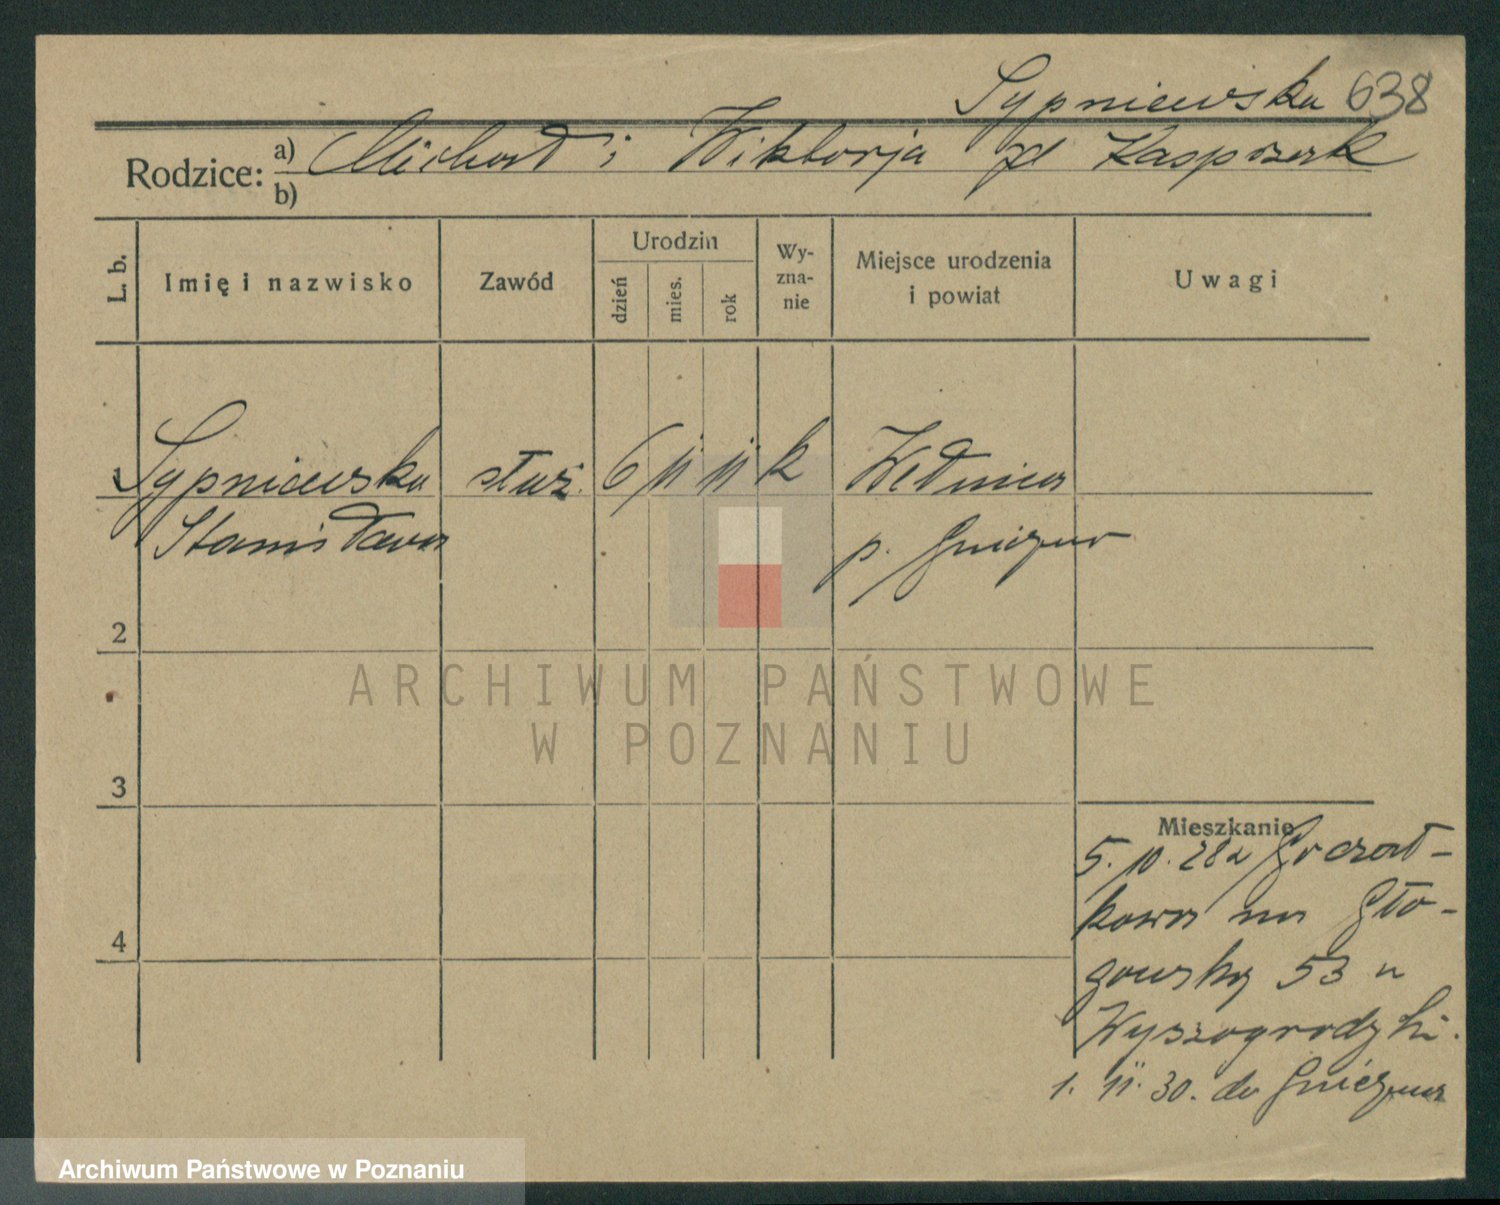 Sypniewska 638
Rodzice: a) Michał i Wiktorja zd Kasprzak
b)
L. b.
Imię i nazwisko
Zawód
Urodzin
dzień
mies.
rok
Wy-
zna-
nie
Miejsce urodzenia
i powiat
Uwagi
1 Sypniewska służ. 6 11 11 k Wełnica
Stanisława p. Gniezno
2
3
4
ARCHIWUM PAŃSTWOWE
W POZNANIU
Mieszkanie
5. 10. 28 z
kowa na Gło-
gowską 53 u
Wyszogrodzki.
1. 11. 30. do Gniezna
Archiwum Państwowe w Poznaniu